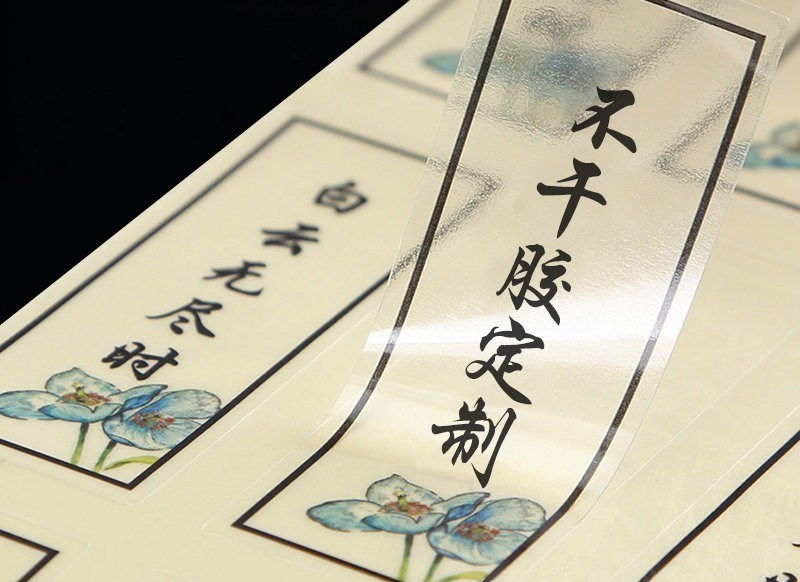 白云无尽时
不干胶定制